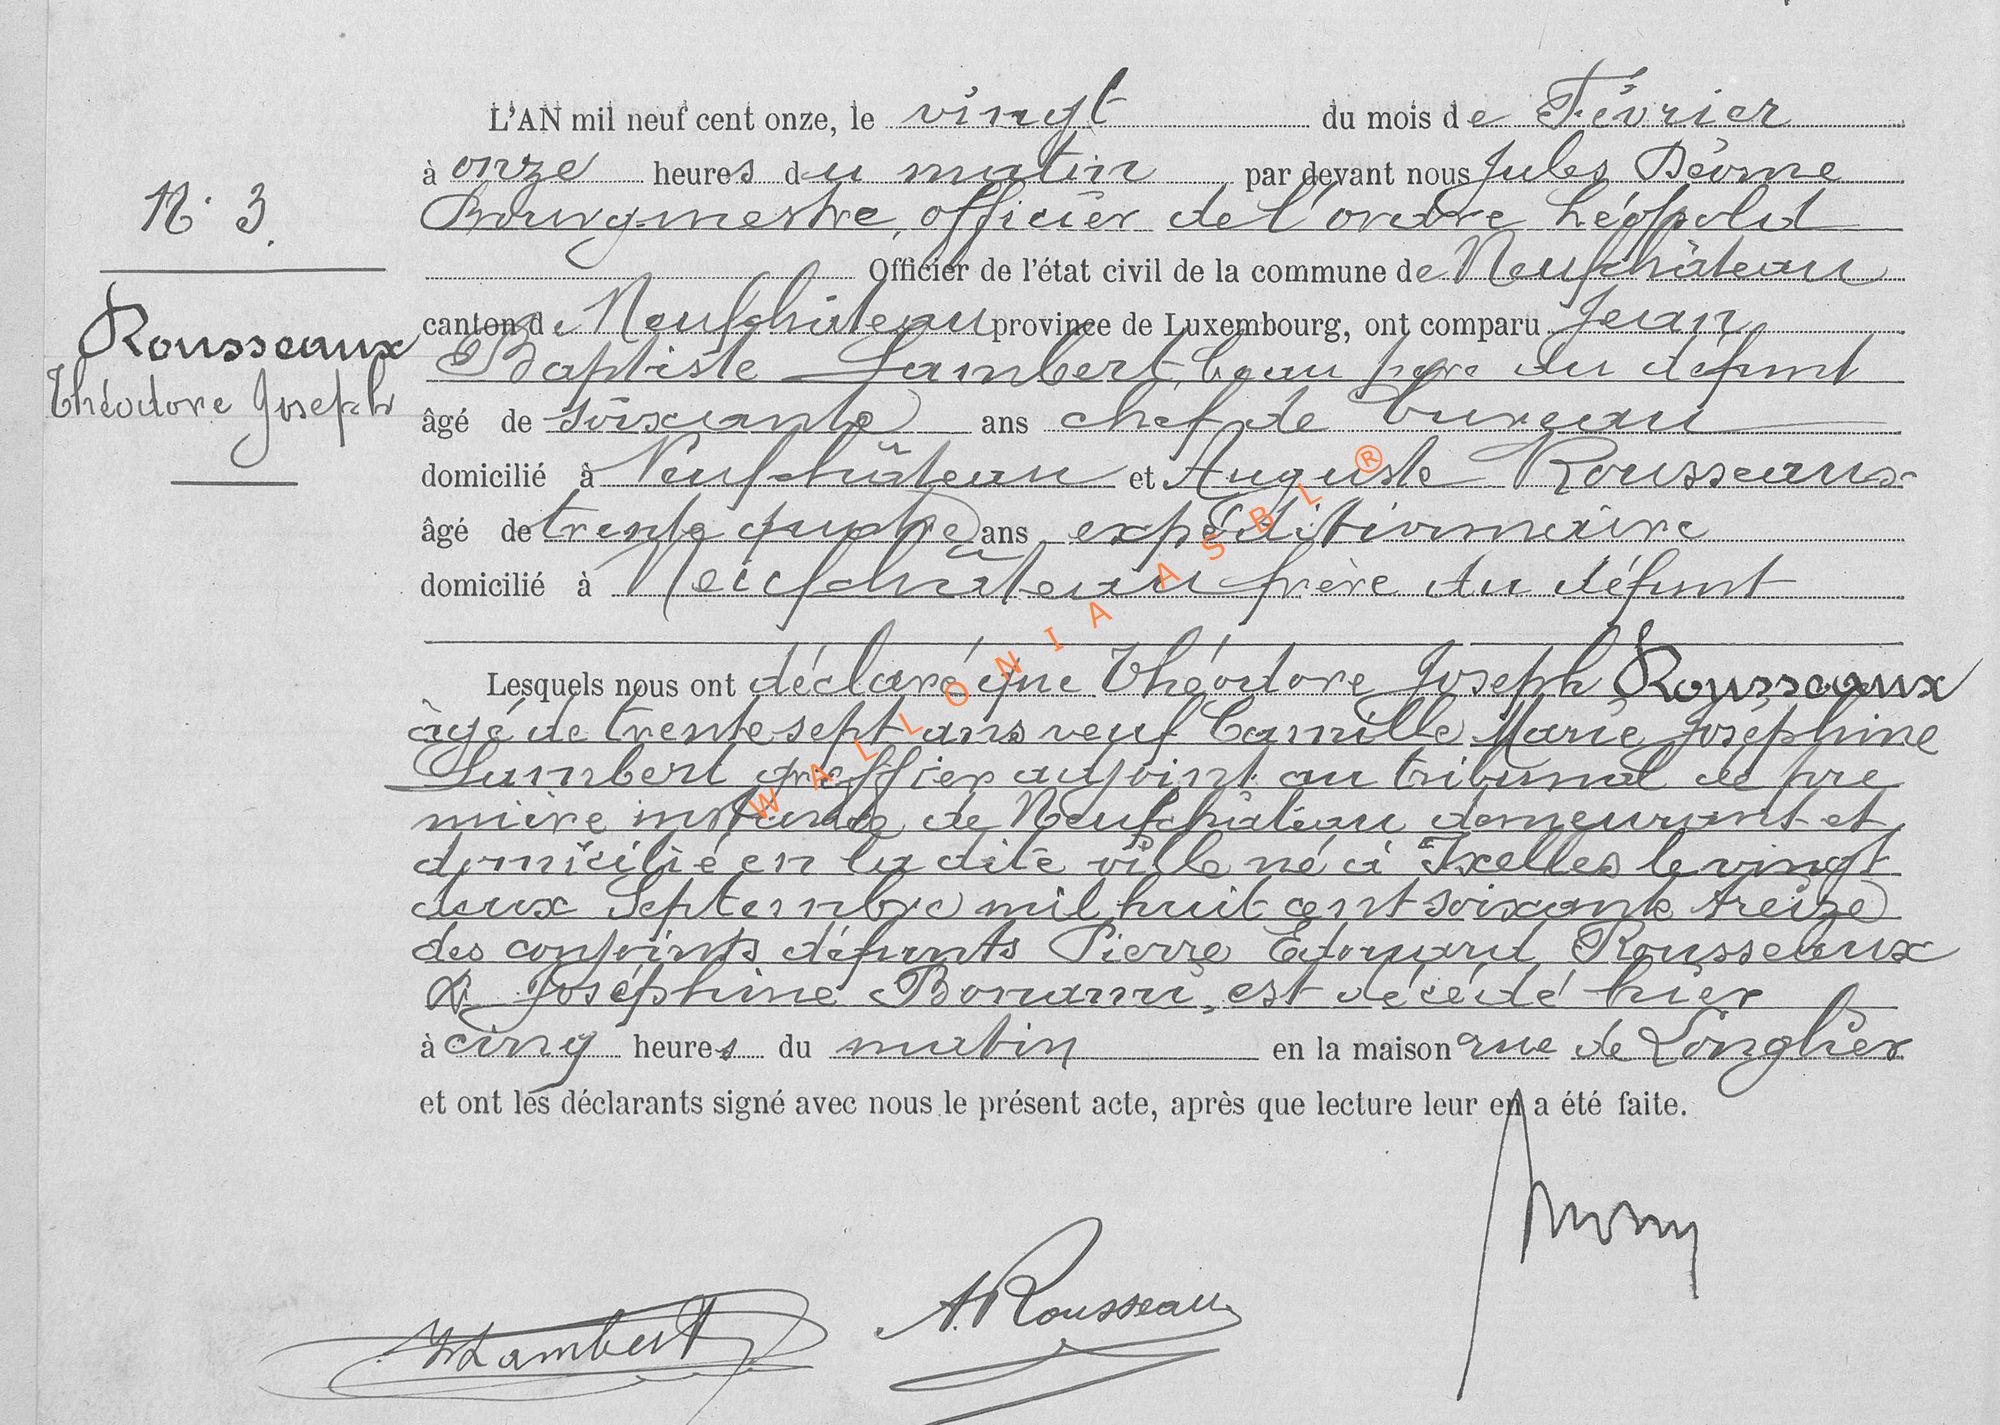 N. 3.
Rousseaux
Théodore Joseph
L'AN mil neuf cent onze, le vingt du mois de Février
à onze heures du matin par devant nous Jules
Bourgmestre, officier de l'ordre Léopold
Officier de l'état civil de la commune de Neufchâteau
canton de Neufchâteau province de Luxembourg, ont comparu Jean
Baptiste Lambert, beau père du défunt
âgé de soixante ans chef de bureau
domicilié à Neufchâteau et Auguste Rousseaux
âgé de trente quatre ans expéditionnaire
domicilié à Neufchâteau frère du défunt
Lesquels nous ont déclaré que Théodore Joseph Rousseaux
âgé de trente sept ans veuf Camille Marie Joséphine
Lambert greffier adjoint au tribunal de pre
mière instance de Neufchâteau demeurant et
domicilié en la dite ville né à Ixelles le vingt
deux Septembre mil huit cent soixante treize
des conjoints défunts Pierre Edouard Rousseaux
& Joséphine est décédé hier
à cinq heures du matin en la maison rue de Longlier
et ont les déclarants signé avec nous le présent acte, après que lecture leur en a été faite.
Lambert A. Rousseaux
WALLONIA ASBL ®